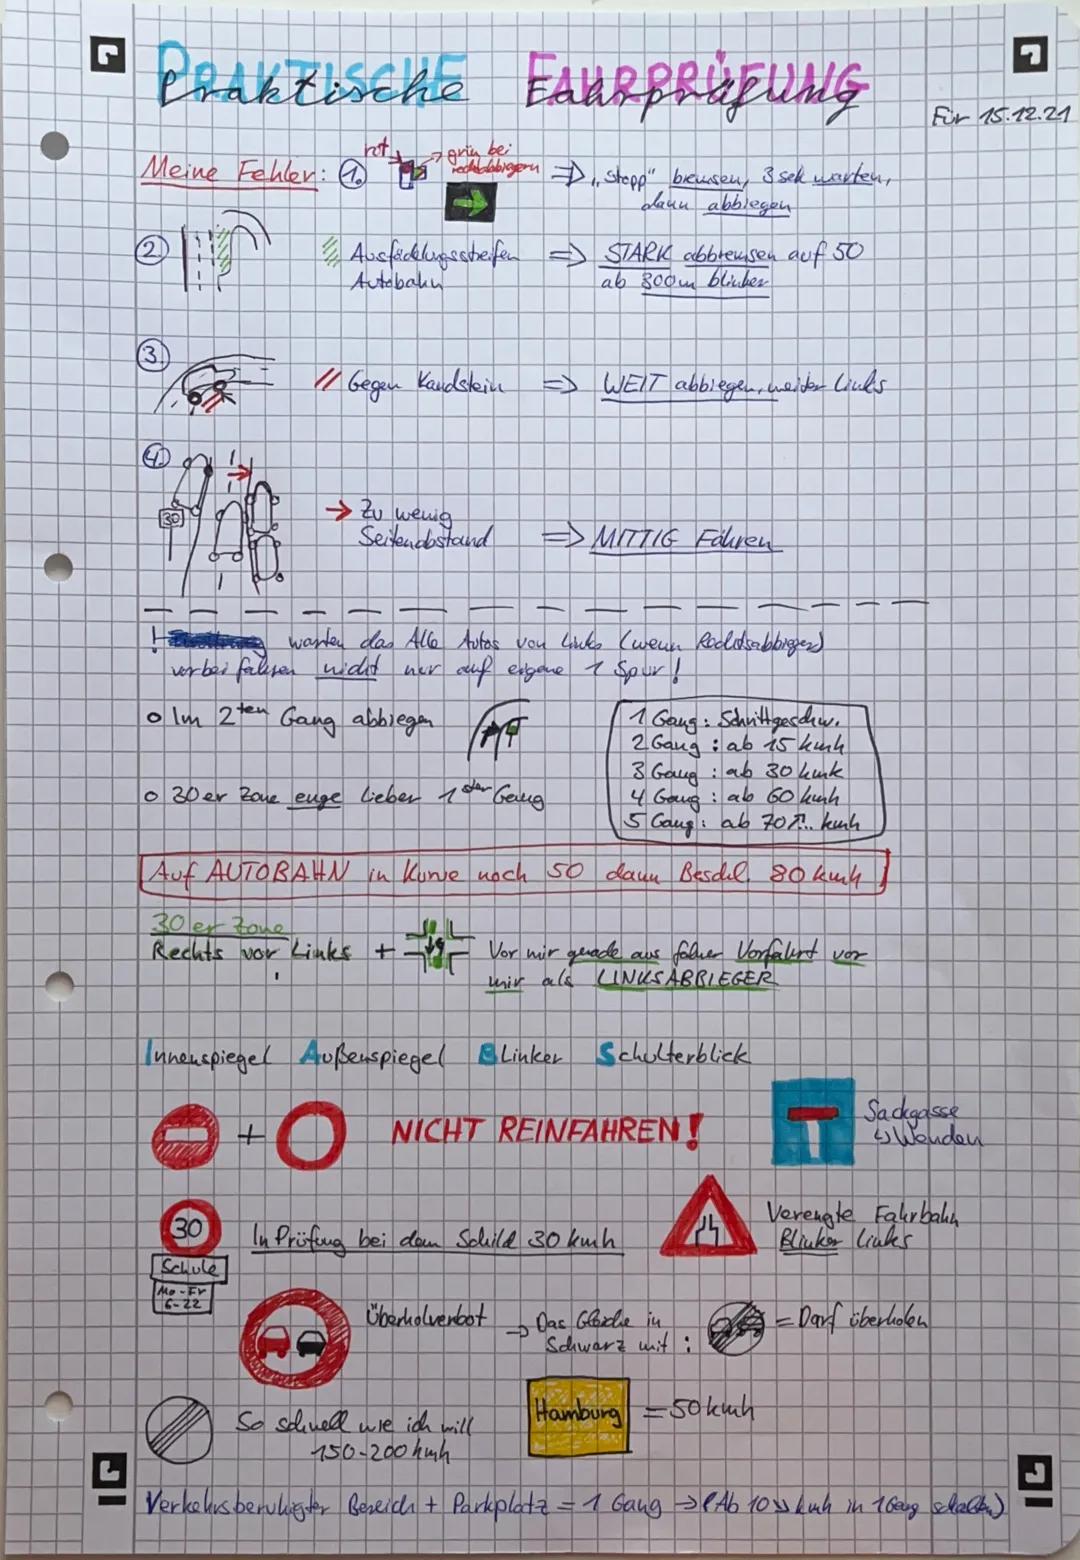 PRAKTISCHE FAHRPRÜFUNG
Praktische Fahrprüfung
Für 15.12.21
Meine Fehler: 1. rot grün bei rechtsabbiegern => "Stopp" bremsen, 3 sek warten,
dann abbiegen
2 Ausfädelungsstreifen => STARK abbremsen auf 50
Autobahn ab 300m blinker
3. Gegen Kandstein => WEIT abbiegen, weiter Links
4.
30
→ Zu wenig
Seitenabstand => MITTIG Fahren
! warten das Alle Autos von Links (wenn Rechtsabbieger)
vorbei fahren nicht nur auf eigene 1 Spur!
o Im 2ten Gang abbiegen
o 30er Zone enge lieber 1ster Gang
1 Gang: Schrittgeschw.
2 Gang: ab 15 kmh
3 Gang: ab 30 kmh
4 Gang: ab 60 kmh
5 Gang: ab 70 ... kmh
Auf AUTOBAHN in Kurve noch 50 dann Beschl. 80 kmh
30er Zone
Rechts vor Links + Vor mir gerade aus fahrer Vorfahrt vor
mir als LINKSABBIEGER
Innenspiegel Außenspiegel Blinker Schulterblick
+ NICHT REINFAHREN!
Sackgasse
↳ Wenden
30
Schule
Mo-Fr
6-22
In Prüfung bei dem Schild 30 kmh
Verengte Fahrbahn
Blinker Links
Überholverbot → Das Gleiche in
Schwarz mit: = Darf überholen
So schnell wie ich will
150-200 kmh
Hamburg = 50 kmh
Verkehrsberuhigter Bereich + Parkplatz = 1 Gang → (Ab 10 kmh in 1 Gang schalten)